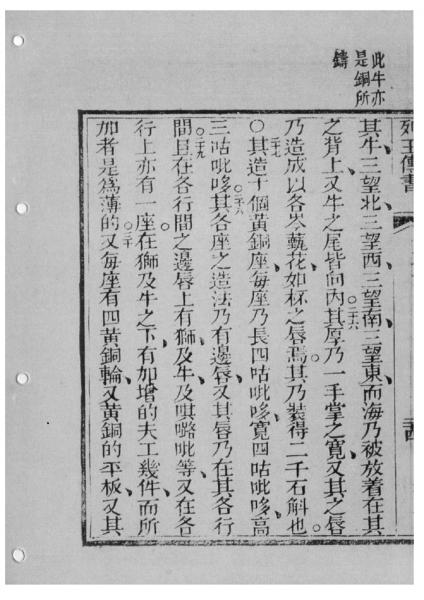 此牛亦
是銅所
鑄
列王傳書
其牛三望北三望西三望南三望東而海乃被放着在其
之背上又牛之尾皆向內○二六其厚乃一手掌之寬又其之唇
乃造成以各岑藐花如杯之唇焉其乃裝得二千石斛也
○二七其造十個黃銅座每座乃長四咕吡哆寬四咕吡哆高
三咕吡哆○二八其各座之造法乃有邊唇又其唇乃在其各行
間○二九且在各行間之邊唇上有獅及牛及𠱥𡀔吡等又在各
行上亦有一座在獅及牛之下有加增的夫工幾件而所
加者是為薄的○三十又每座有四黃銅輪又黃銅的平板又其